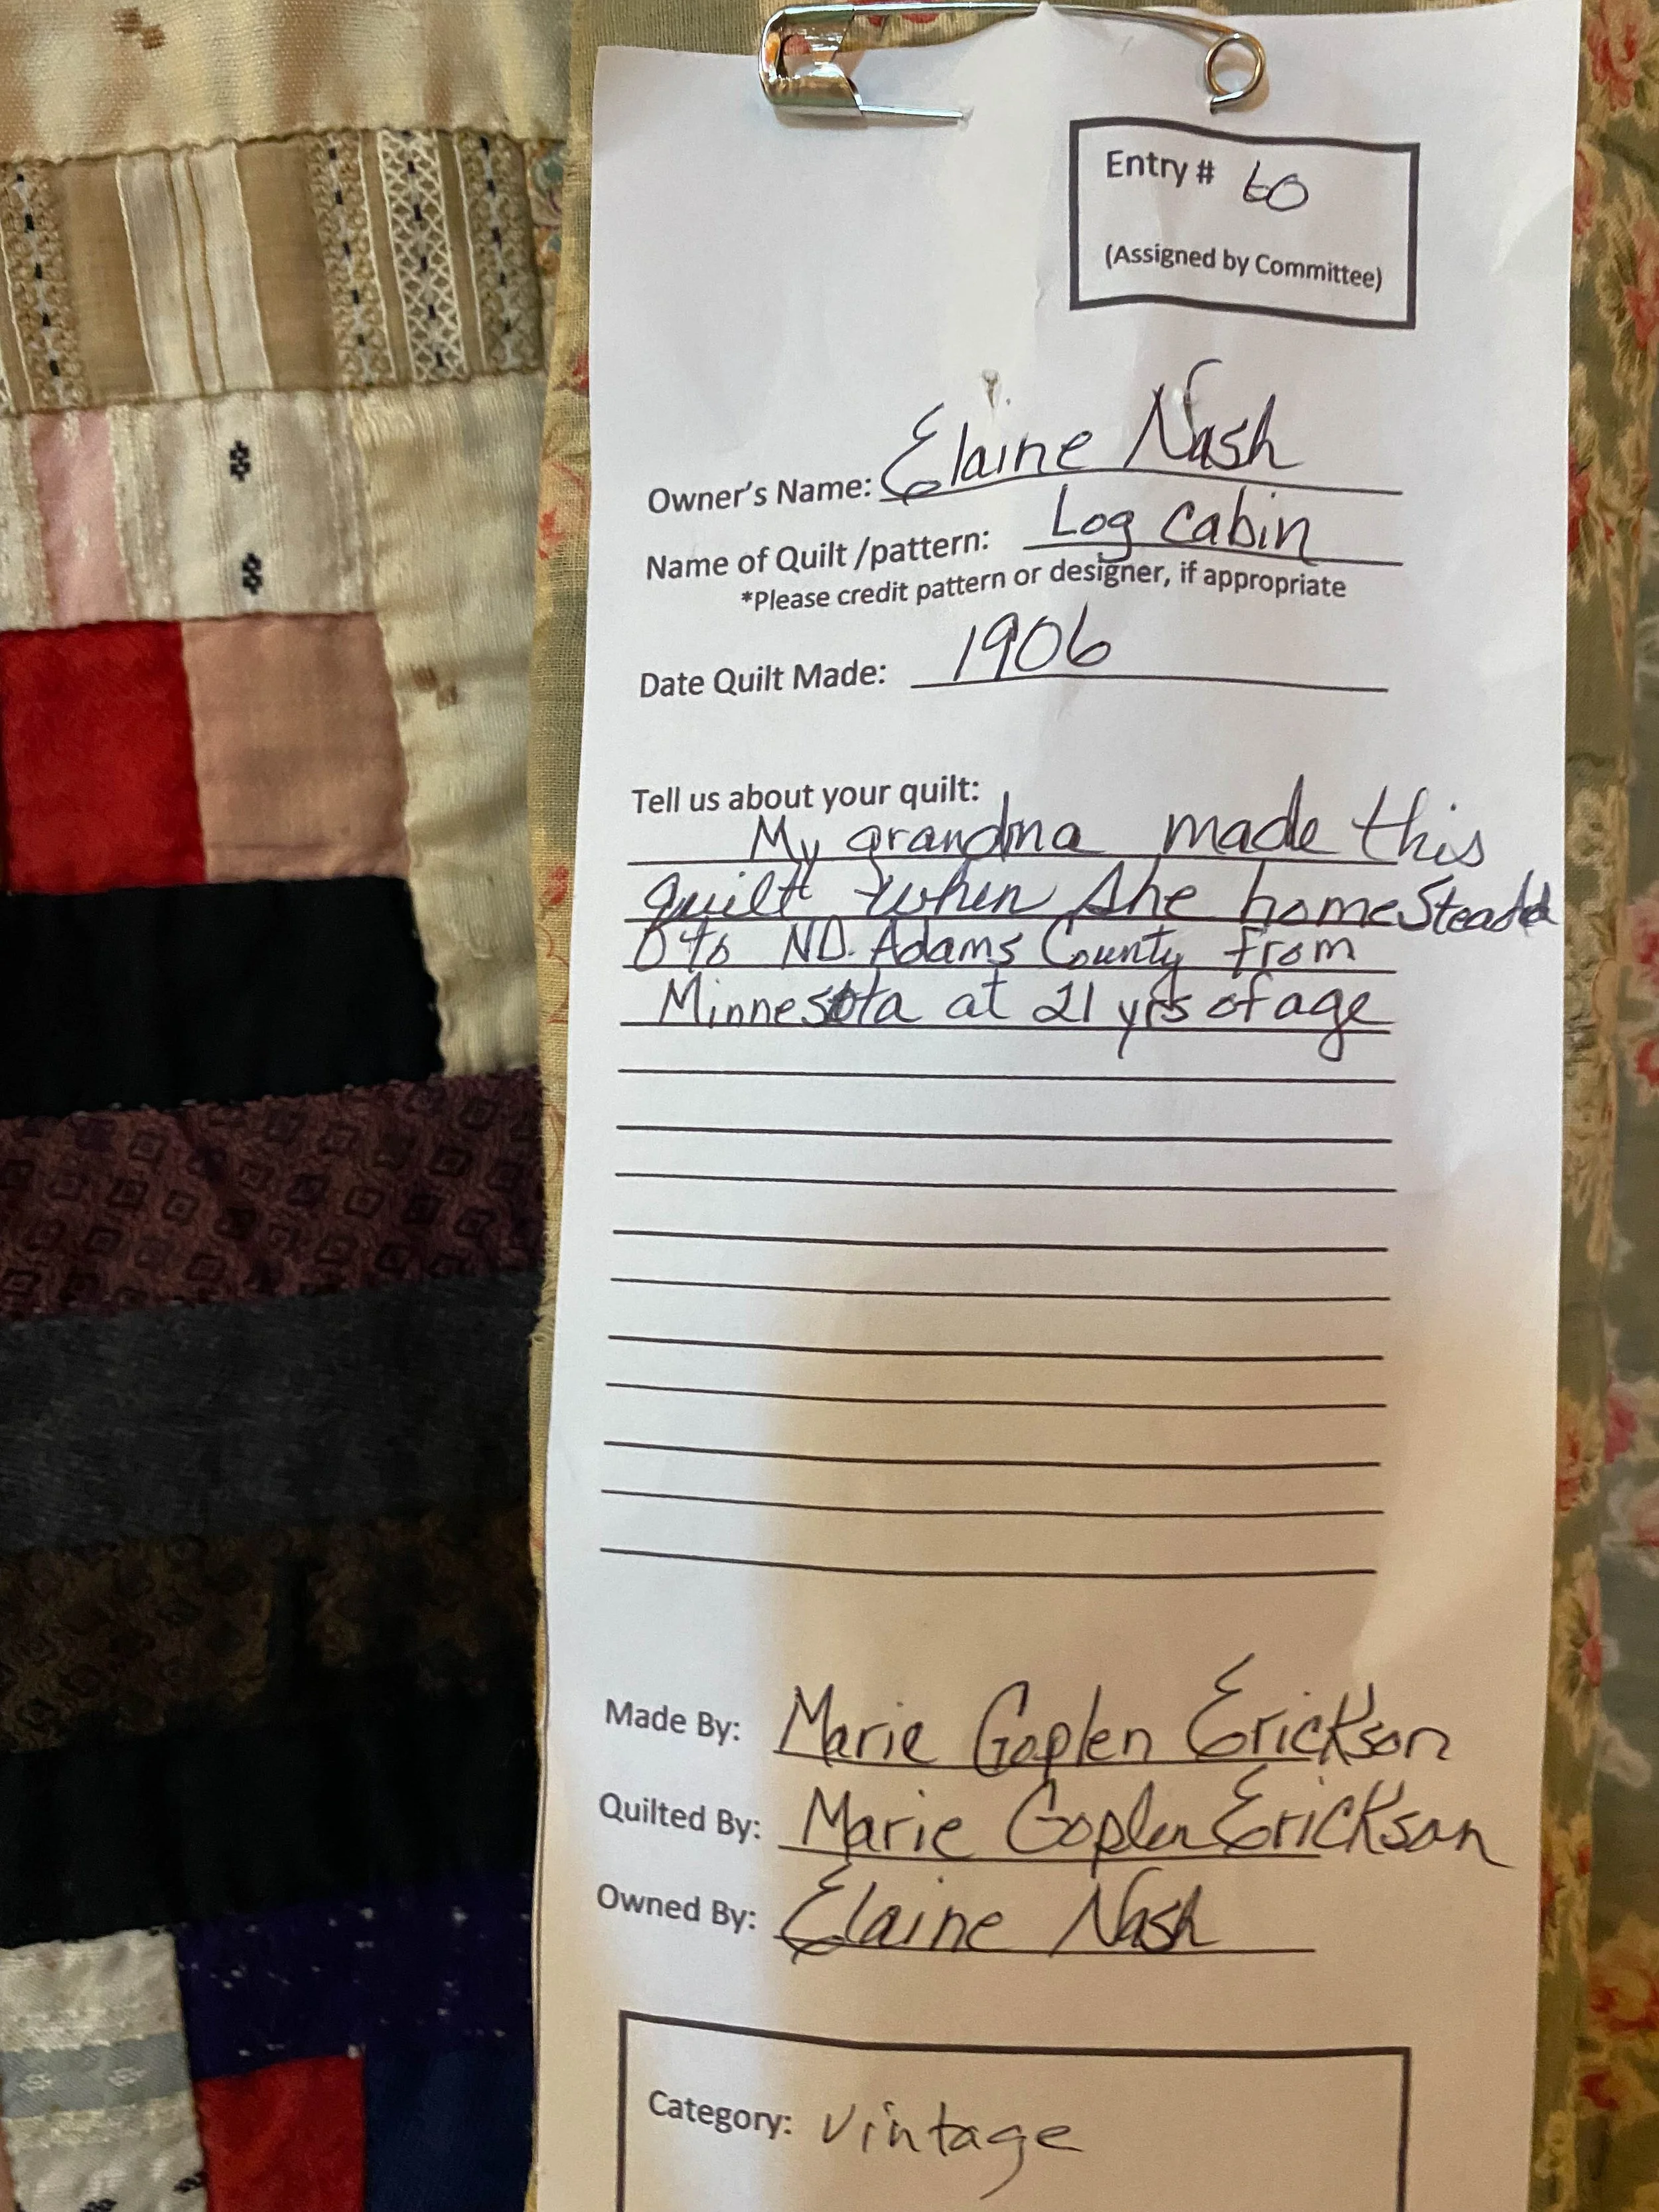 Entry # 60
(Assigned by Committee)
Owner's Name: Elaine Nash
Name of Quilt /pattern: Log Cabin
*Please credit pattern or designer, if appropriate
Date Quilt Made: 1906
Tell us about your quilt:
My grandma made this
quilt when she homestead
to ND. Adams County from
Minnesota at 21 yrs of age
Made By: Marie Goplen Erickson
Quilted By: Marie Goplen Erickson
Owned By: Elaine Nash
Category: Vintage